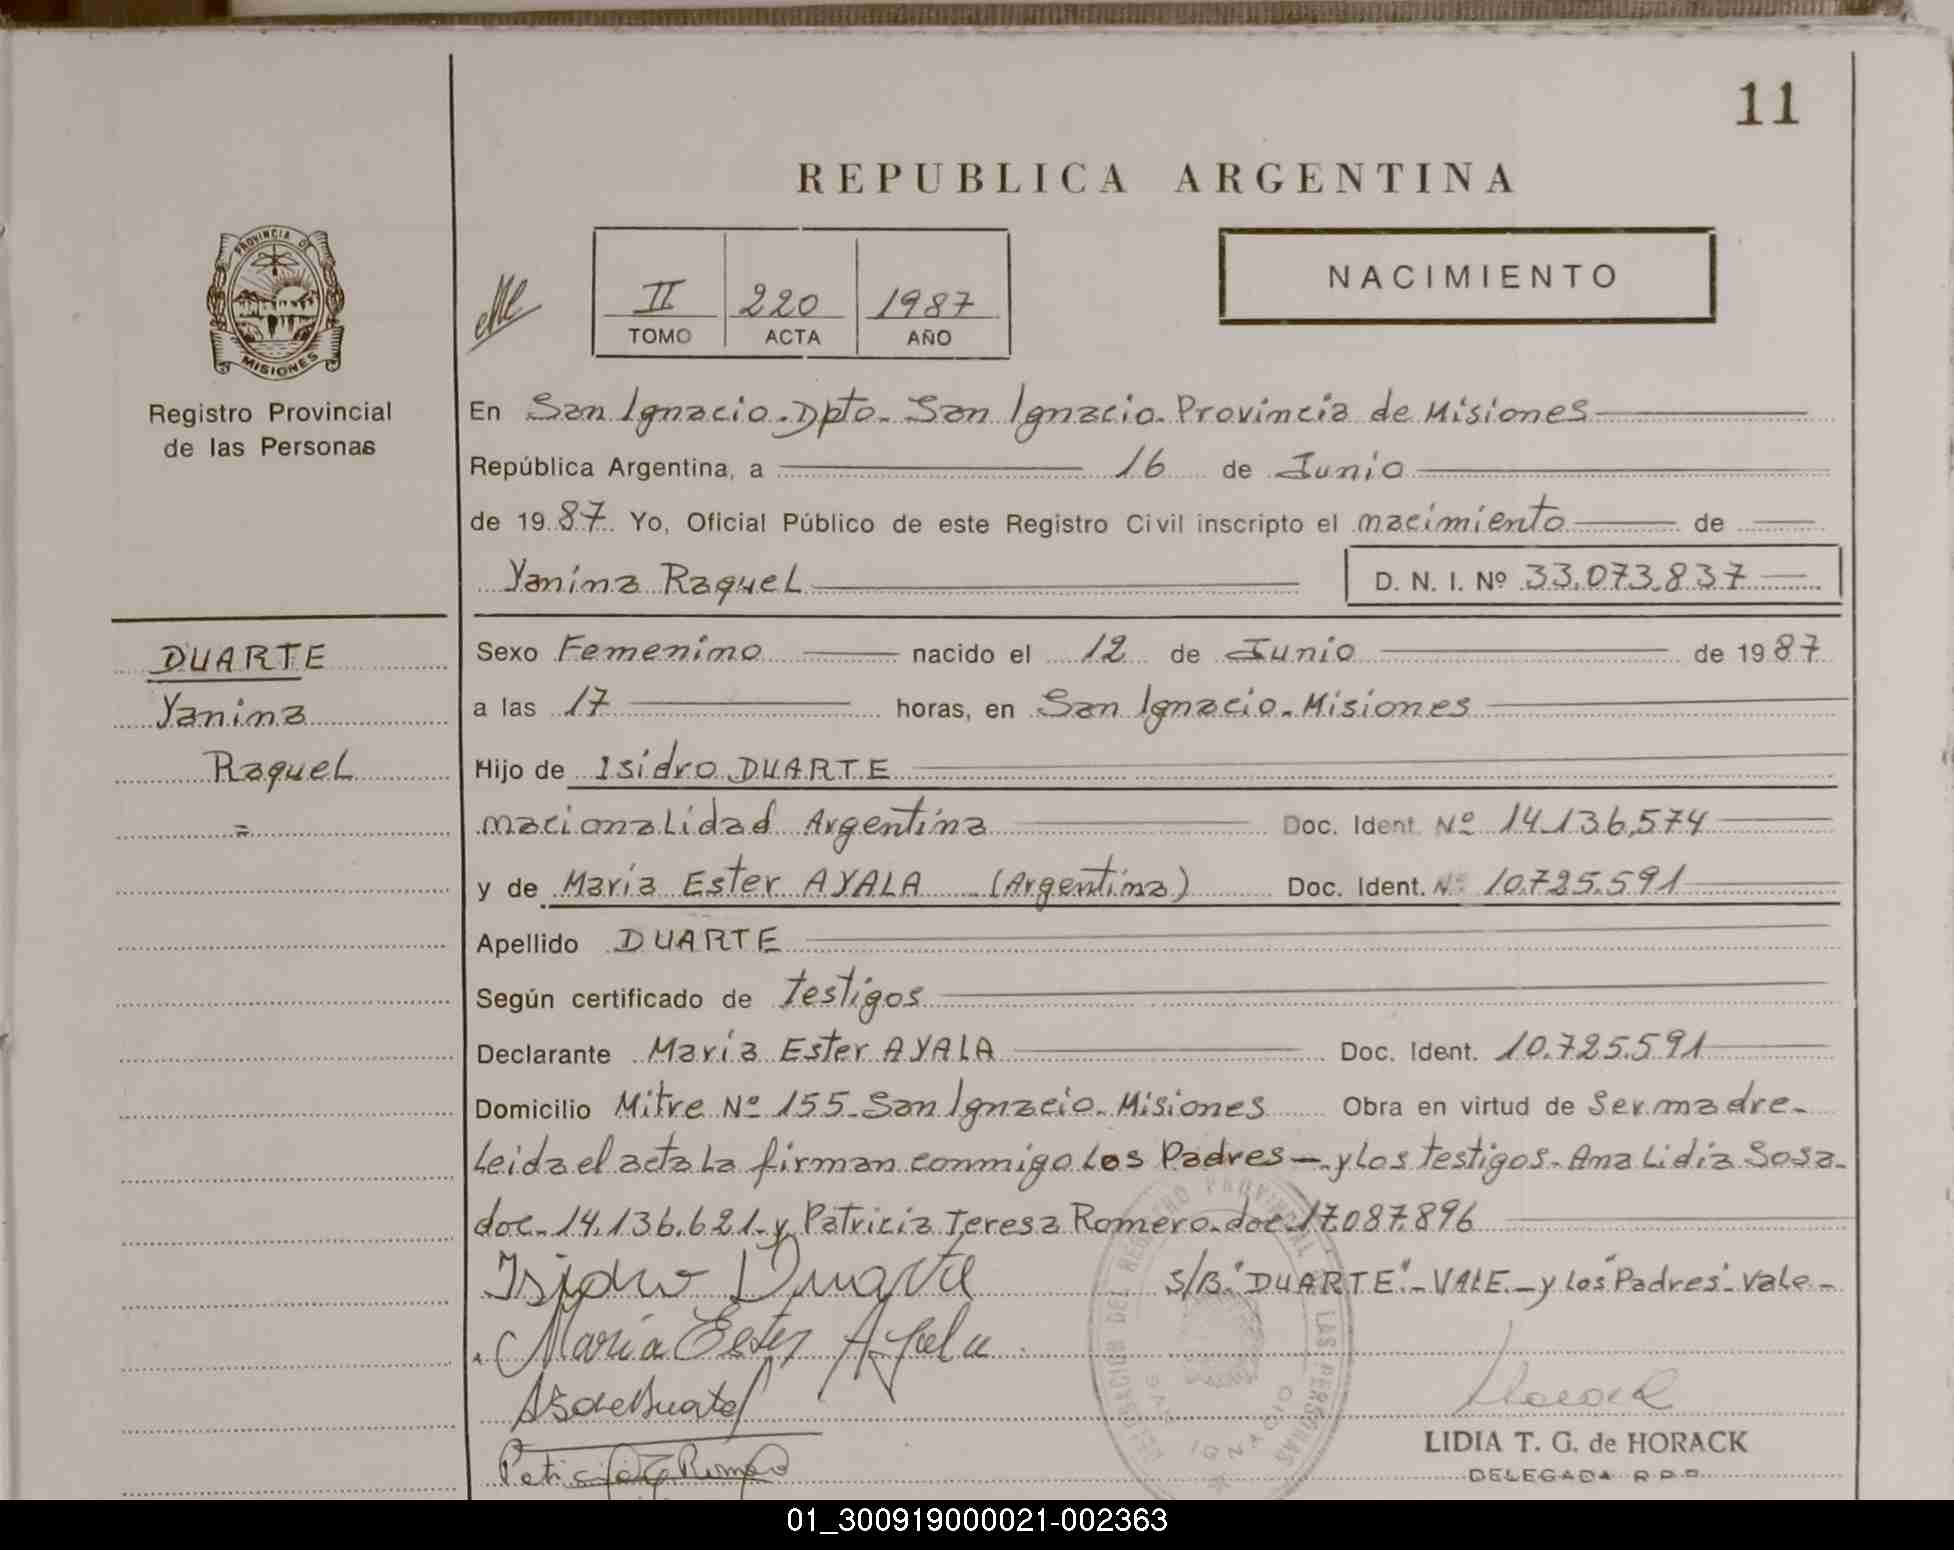 11
REPUBLICA ARGENTINA
PROVINCIA DE
MISIONES
Registro Provincial
de las Personas
II 220 1987
TOMO ACTA AÑO
NACIMIENTO
En San Ignacio. Dpto. San Ignacio. Provincia de Misiones
República Argentina, a 16 de Junio
de 1987 Yo, Oficial Público de este Registro Civil inscripto el nacimiento de
Yanina Raquel D. N. I. Nº 33.073.837
DUARTE
Yanina
Raquel
=
Sexo Femenino nacido el 12 de Junio de 1987
a las 17 horas, en San Ignacio. Misiones
Hijo de Isidro DUARTE
nacionalidad Argentina Doc. Ident. Nº 14.136.574
y de Maria Ester AYALA (Argentina) Doc. Ident. Nº 10.725.591
Apellido DUARTE
Según certificado de testigos
Declarante Maria Ester AYALA Doc. Ident. 10.725.591
Domicilio Mitre Nº 155. San Ignacio. Misiones Obra en virtud de Ser madre.
Leida el acta La firman conmigo Los Padres — y Los testigos. Ana Lidia Sosa.
doc. 14.136.621. y Patricia Teresa Romero. doc. 17.087.896
Isidro Duarte S/B. "DUARTE". - VALE. - y Los "Padres". Vale -
Maria Ester Ayala
DELEGACION DEL REGISTRO PROVINCIAL DE LAS PERSONAS
SAN IGNACIO
LIDIA T. G. de HORACK
DELEGADA R.P.P.
01_300919000021-002363